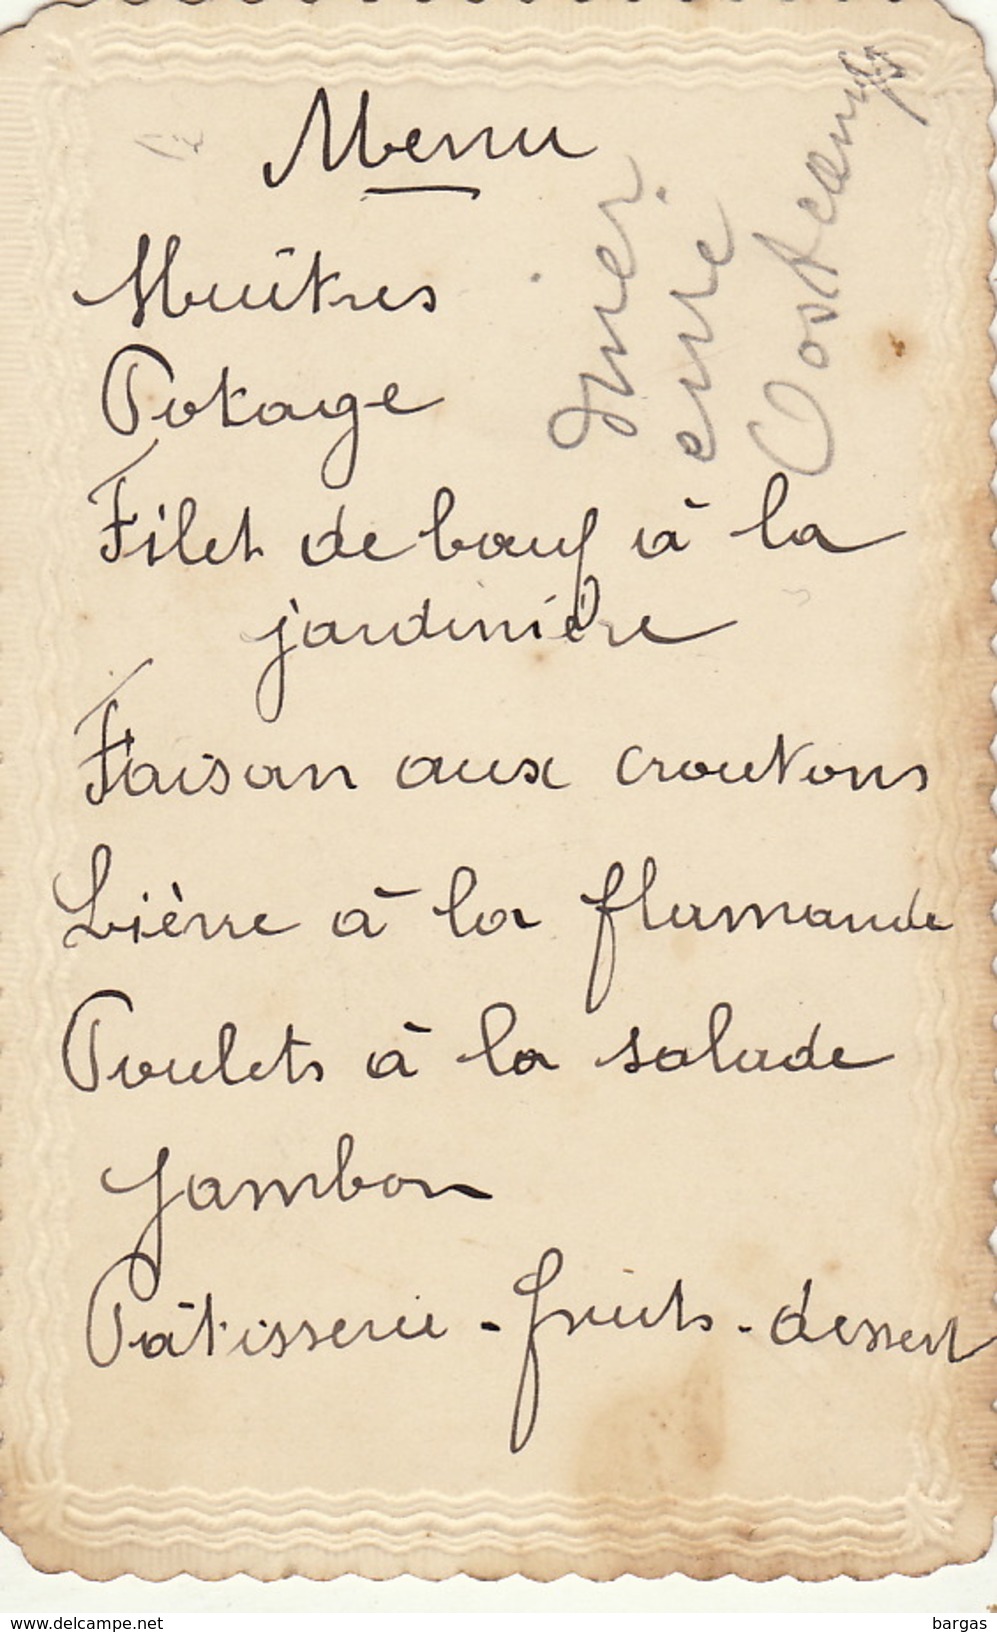 Menu
Huîtres
Potage
Filet de bœuf à la
jardinière
Faisan aux croutons
Lièvre à la flamande
Poulets à la salade
Jambon
Pâtisserie - fruits - dessert
diner
cure
Oostcamp
www.delcampe.net
bargas